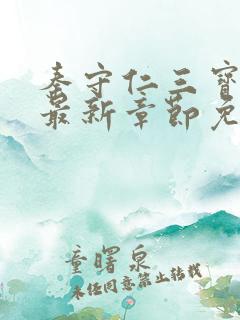 秦守仁三寶
最新章節免
童曙泉
未经同意禁止转载